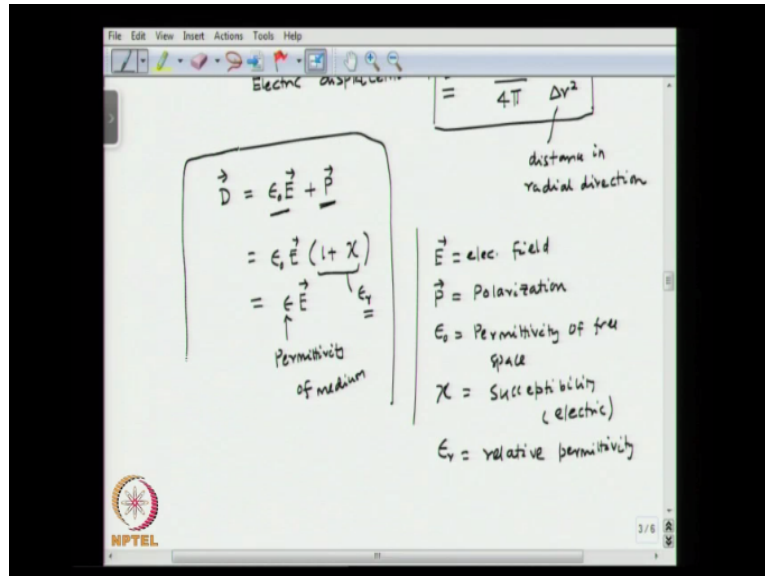 File Edit View Insert Actions Tools Help
Electric
= 4π Δr²
distance in
radial direction
D⃗ = ϵ₀E⃗ + P⃗
= ϵ₀ E⃗ (1 + χ)
= ϵ E⃗ ϵr
Permittivity
of medium
E⃗ = elec. field
P⃗ = Polarization
ϵ₀ = Permittivity of free
space
χ = Succeptibility
(electric)
ϵr = relative permittivity
NPTEL
3/6